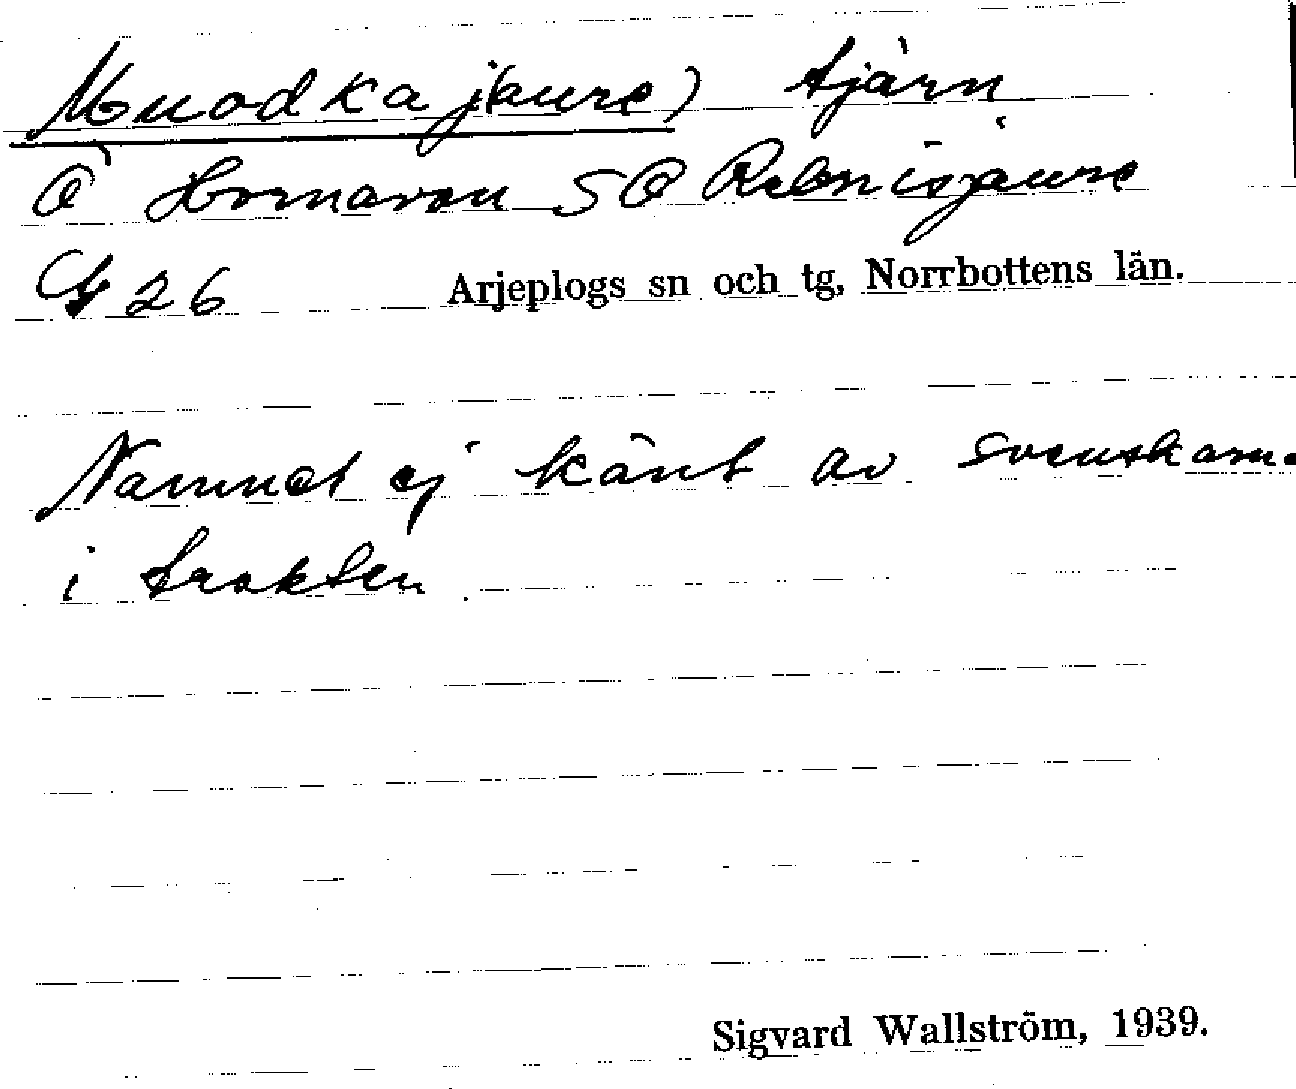 Muodkaj(aure) tjärn
Ö Hornavan SO Rebnisjaure
G 26 Arjeplogs sn och tg, Norrbottens län.
Namnet ej känt av svenskarna
i trakten
Sigvard Wallström, 1939.